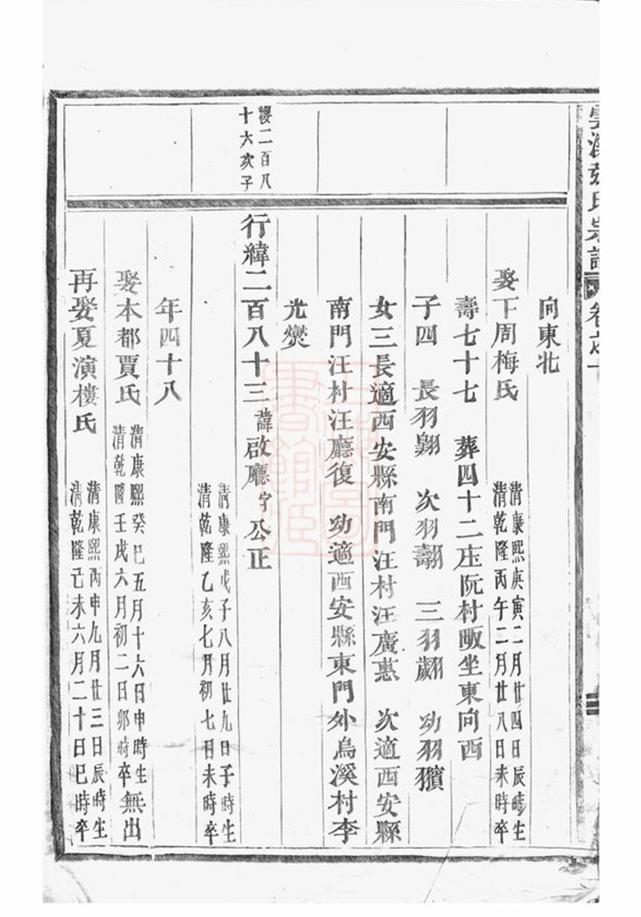 向東北
娶下周梅氏 清康熙庚寅二月廿四日辰時生
清乾隆丙午二月廿八日未時卒
壽七十七 葬四十二庄阮村畈坐東向西
子四 長羽翺 次羽翿 三羽翽 幼羽
女三長適西安縣南門汪村汪廣惠 次適西安縣
南門汪村汪廳復 幼適西安縣東門外烏溪村李
光爕
纓二百八
十六次子
行緯二百八十三 諱啟廳字公正 清康熙戊子八月廿九日子時生
清乾隆乙亥七月初七日未時卒
年四十八
娶本都賈氏 清康熙癸巳五月十六日申時生
清乾隆壬戌六月初二日卯時卒 無出
再娶夏演樓氏 清康熙丙申九月廿三日辰時生
清乾隆己未六月二十日巳時卒